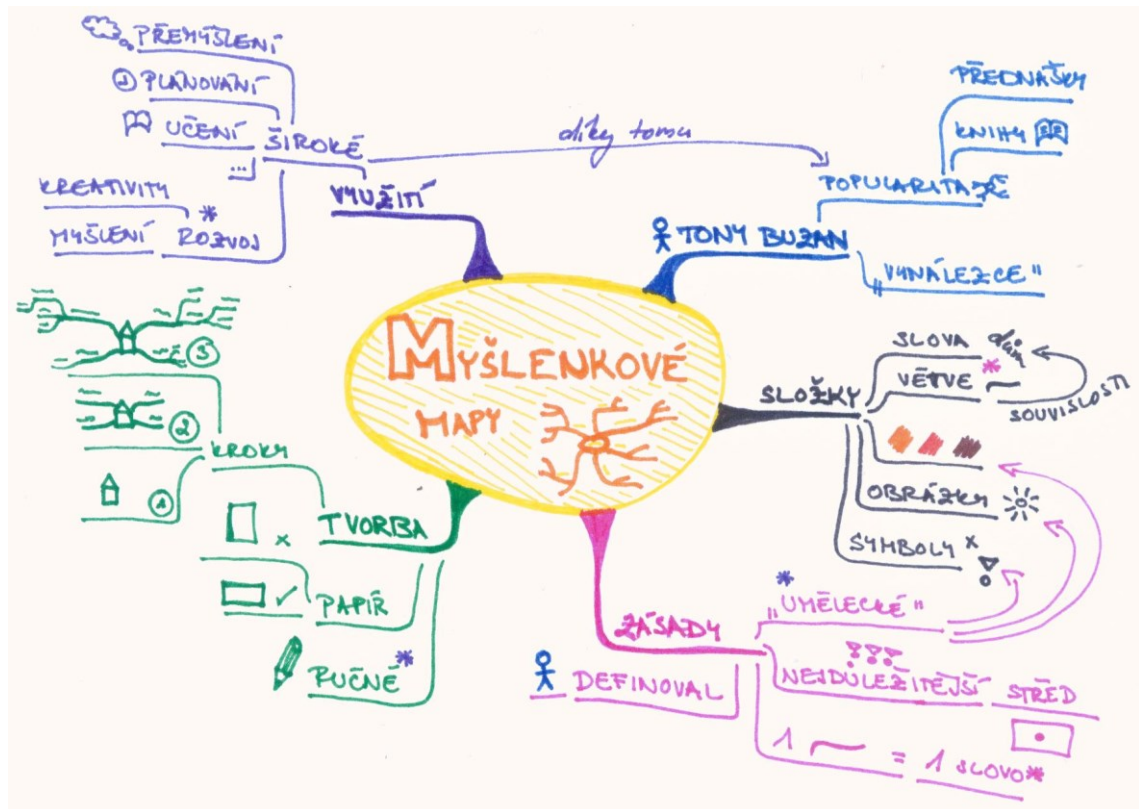 MYŠLENKOVÉ
MAPY
VYUŽITÍ
ŠIROKÉ
PŘEMÝŠLENÍ
1 PLÁNOVÁNÍ
UČENÍ
...
ROZVOJ *
KREATIVITY
MYŠLENÍ
díky tomu
TONY BUZAN
POPULARITA
PŘEDNÁŠKY
KNIHY
„VYNÁLEZCE"
SLOŽKY
SLOVA dům
VĚTVE *
SOUVISLOSTI
OBRÁZKY
SYMBOLY x !
ZÁSADY
* „UMĚLECKÉ"
!!!
NEJDŮLEŽITĚJŠÍ STŘED
1 = 1 SLOVO*
DEFINOVAL
TVORBA
KROKY
3
2
1
PAPÍR
x
✓
RUČNĚ*